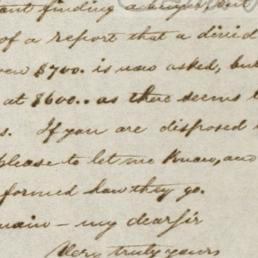 ant finding a buyer, but
of a report that a divid
ven $700. is now asked, but
at $600.. as there seems t
s. If you are disposed
please to let me know, and
formed how they go.
main - my dear sir
Very truly yours